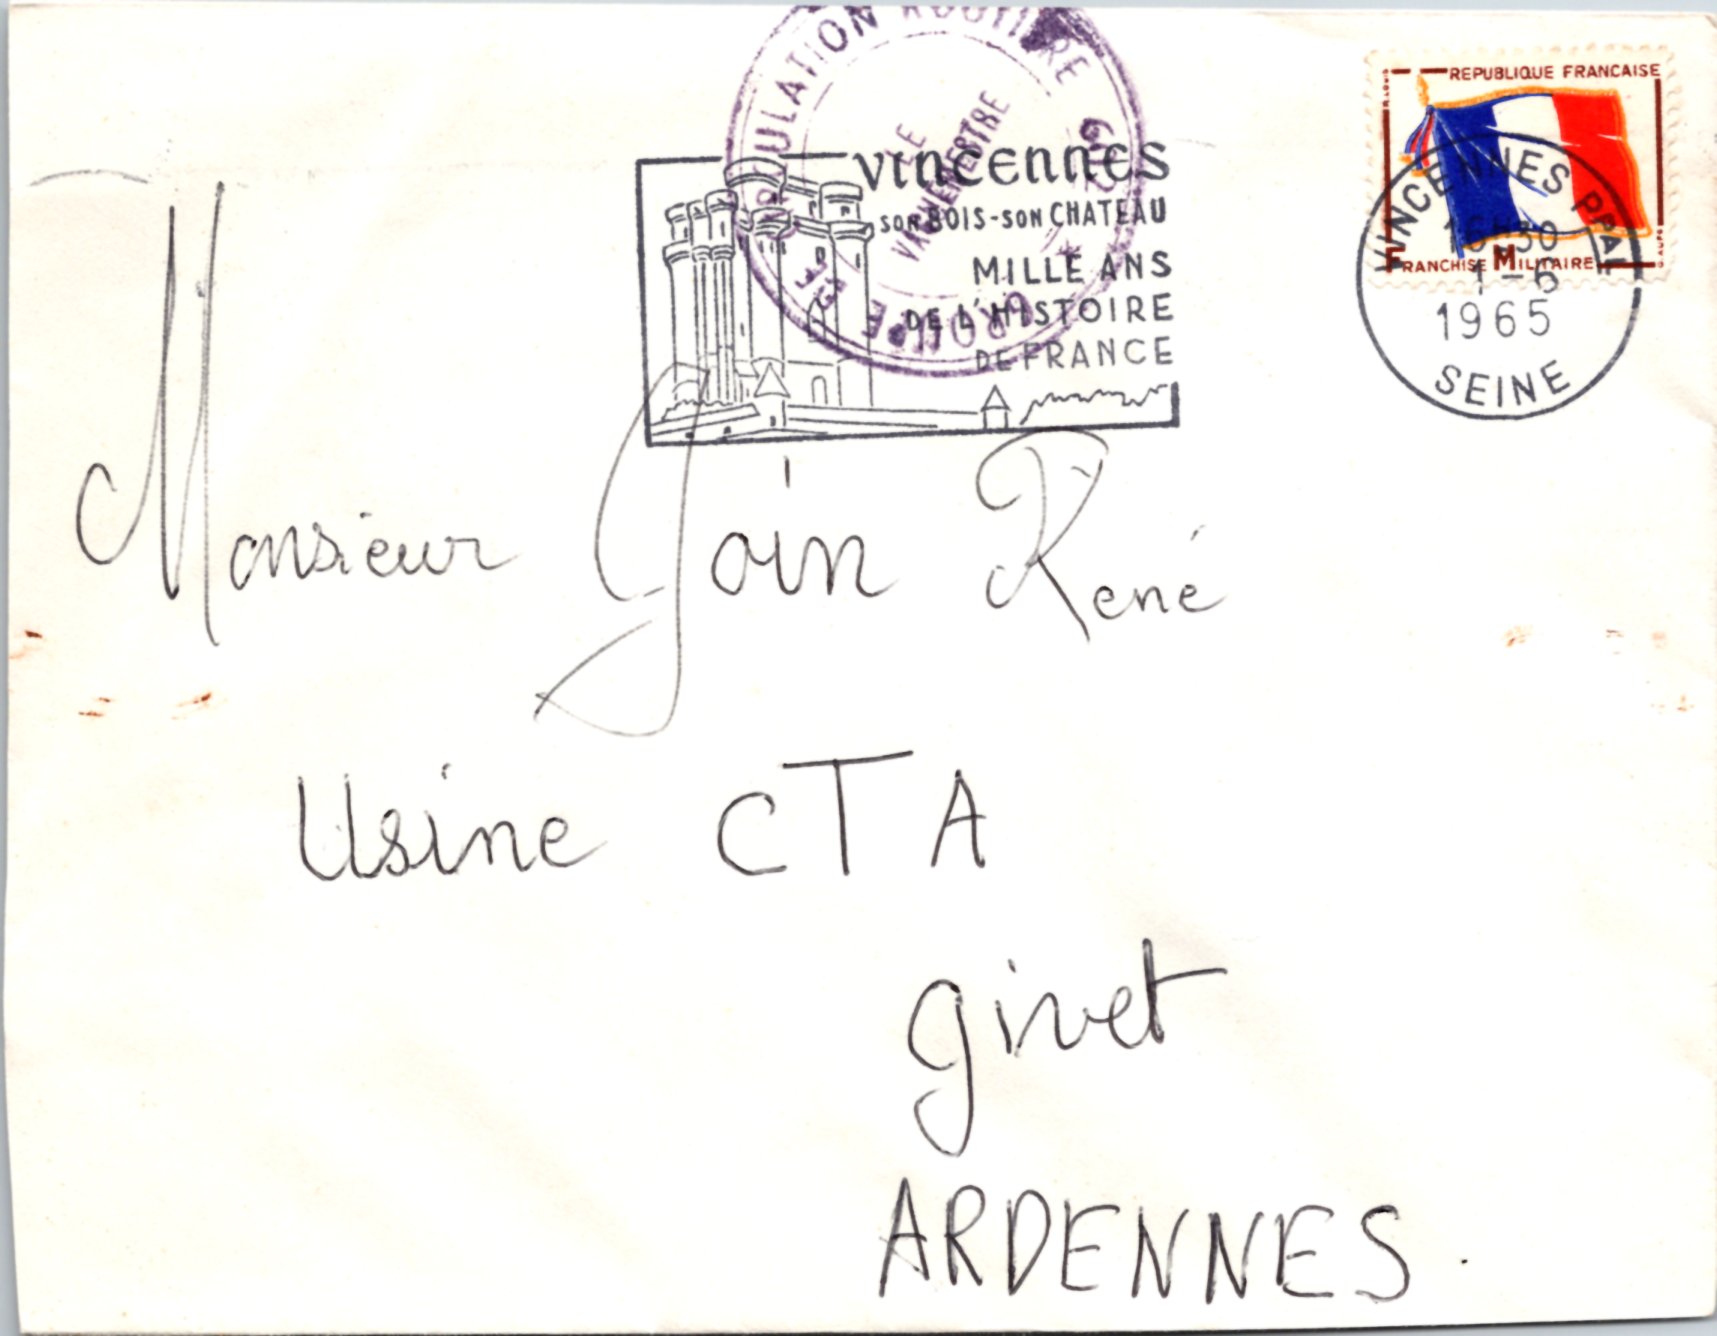 CIRCULATION ROUTIERE
GROUPE DE
LE
VAGUEMESTRE
VINCENNES
SON BOIS-SON CHATEAU
MILLE ANS
DE L'HISTOIRE
DE FRANCE
REPUBLIQUE FRANCAISE
FRANCHISE MILITAIRE
VINCENNES PPAL
15H30
1-6
1965
SEINE
Monsieur Join René
Usine CTA
Givet
ARDENNES.